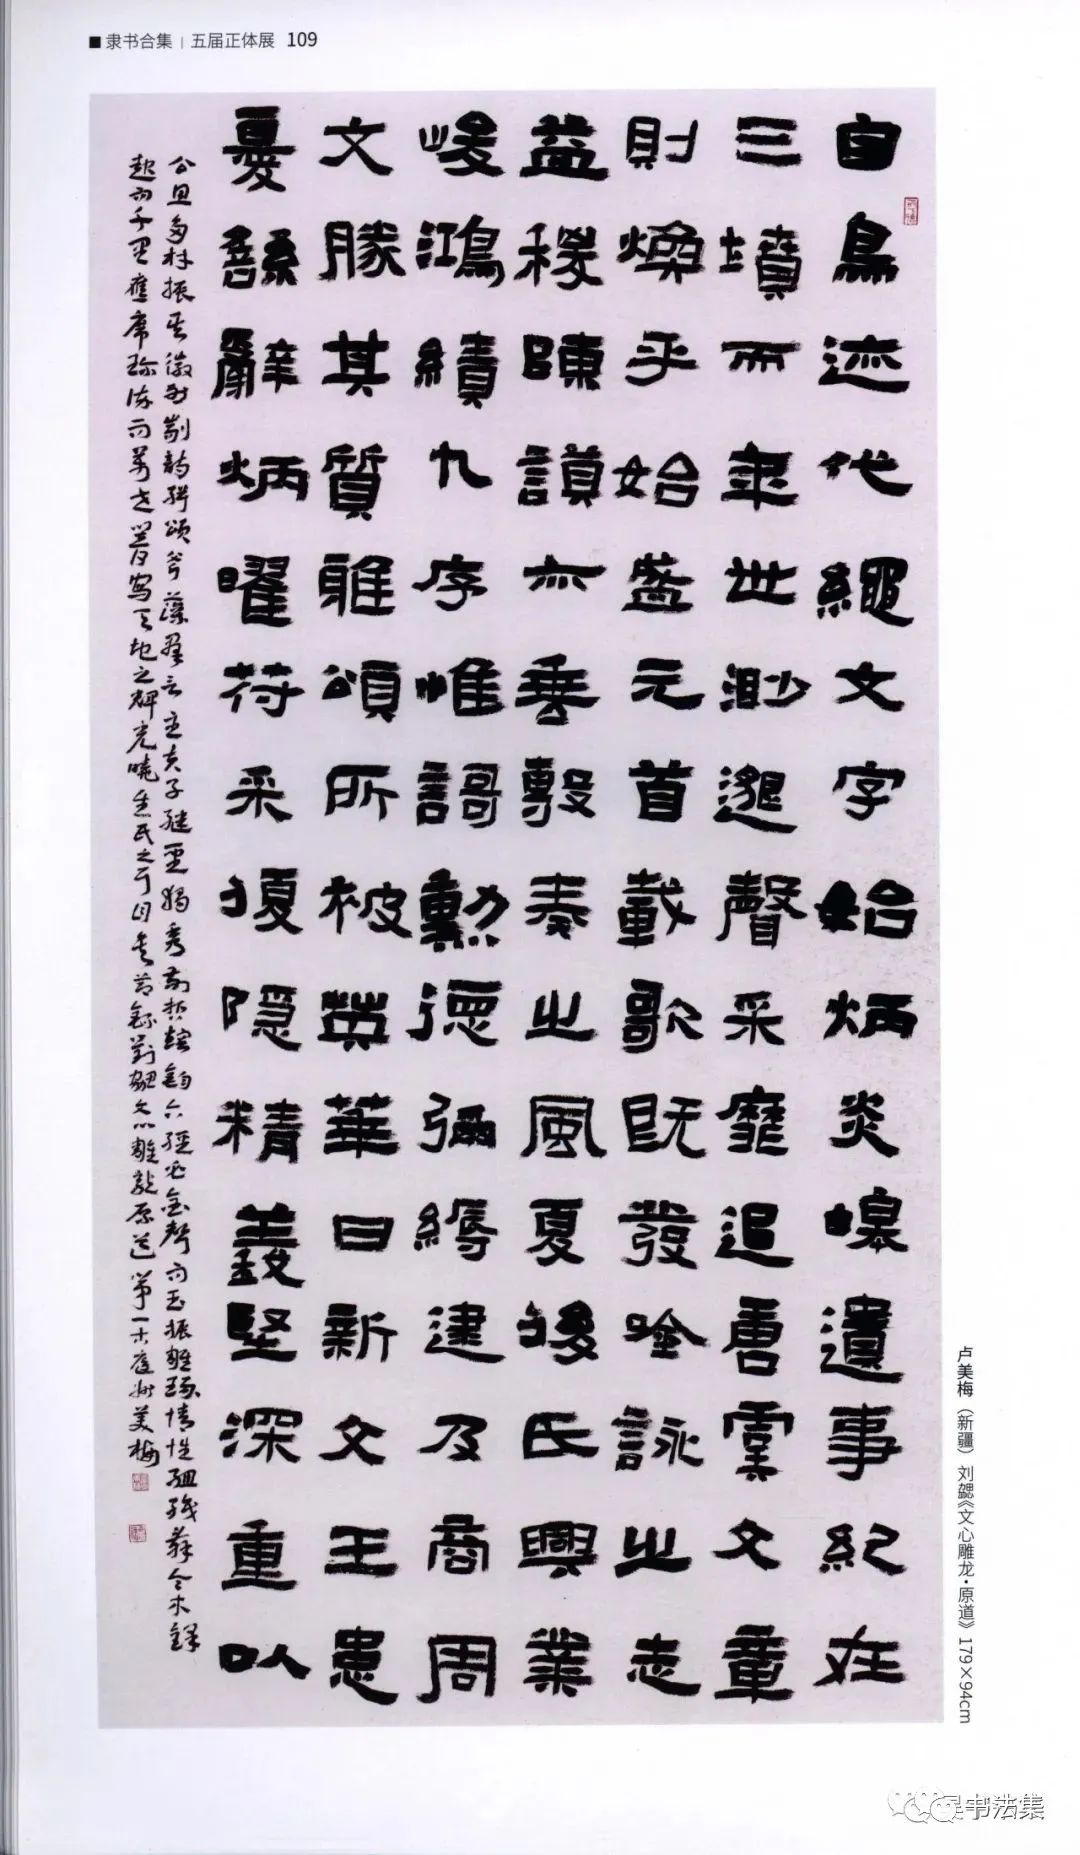 ■ 隶书合集 | 五届正体展 109
自鳥迹代繩文字始炳炎皞遺事紀在
三墳而年世渺邈聲采靡追唐虞文章
則煥乎始盛元首載歌既發吟詠之志
益稷陳謨亦垂敷奏之風夏後氏興業
峻鴻績九序惟謌勳德彌縟逮及商周
文勝其質雅頌所被英華日新文王患
憂繇辭炳曜符采復隱精義堅深重以
公旦多材振其徽烈剬詩緝頌斧藻群言至夫子繼聖獨秀前哲熔鈞六經必金聲而玉振雕琢情性組織辭令木鐸
起而千里應席珍流而萬世響寫天地之輝光曉生民之耳目矣節錄劉勰文心雕龍原道第一古庭州美梅
卢美梅（新疆） 刘勰《文心雕龙·原道》 179×94cm
书法集